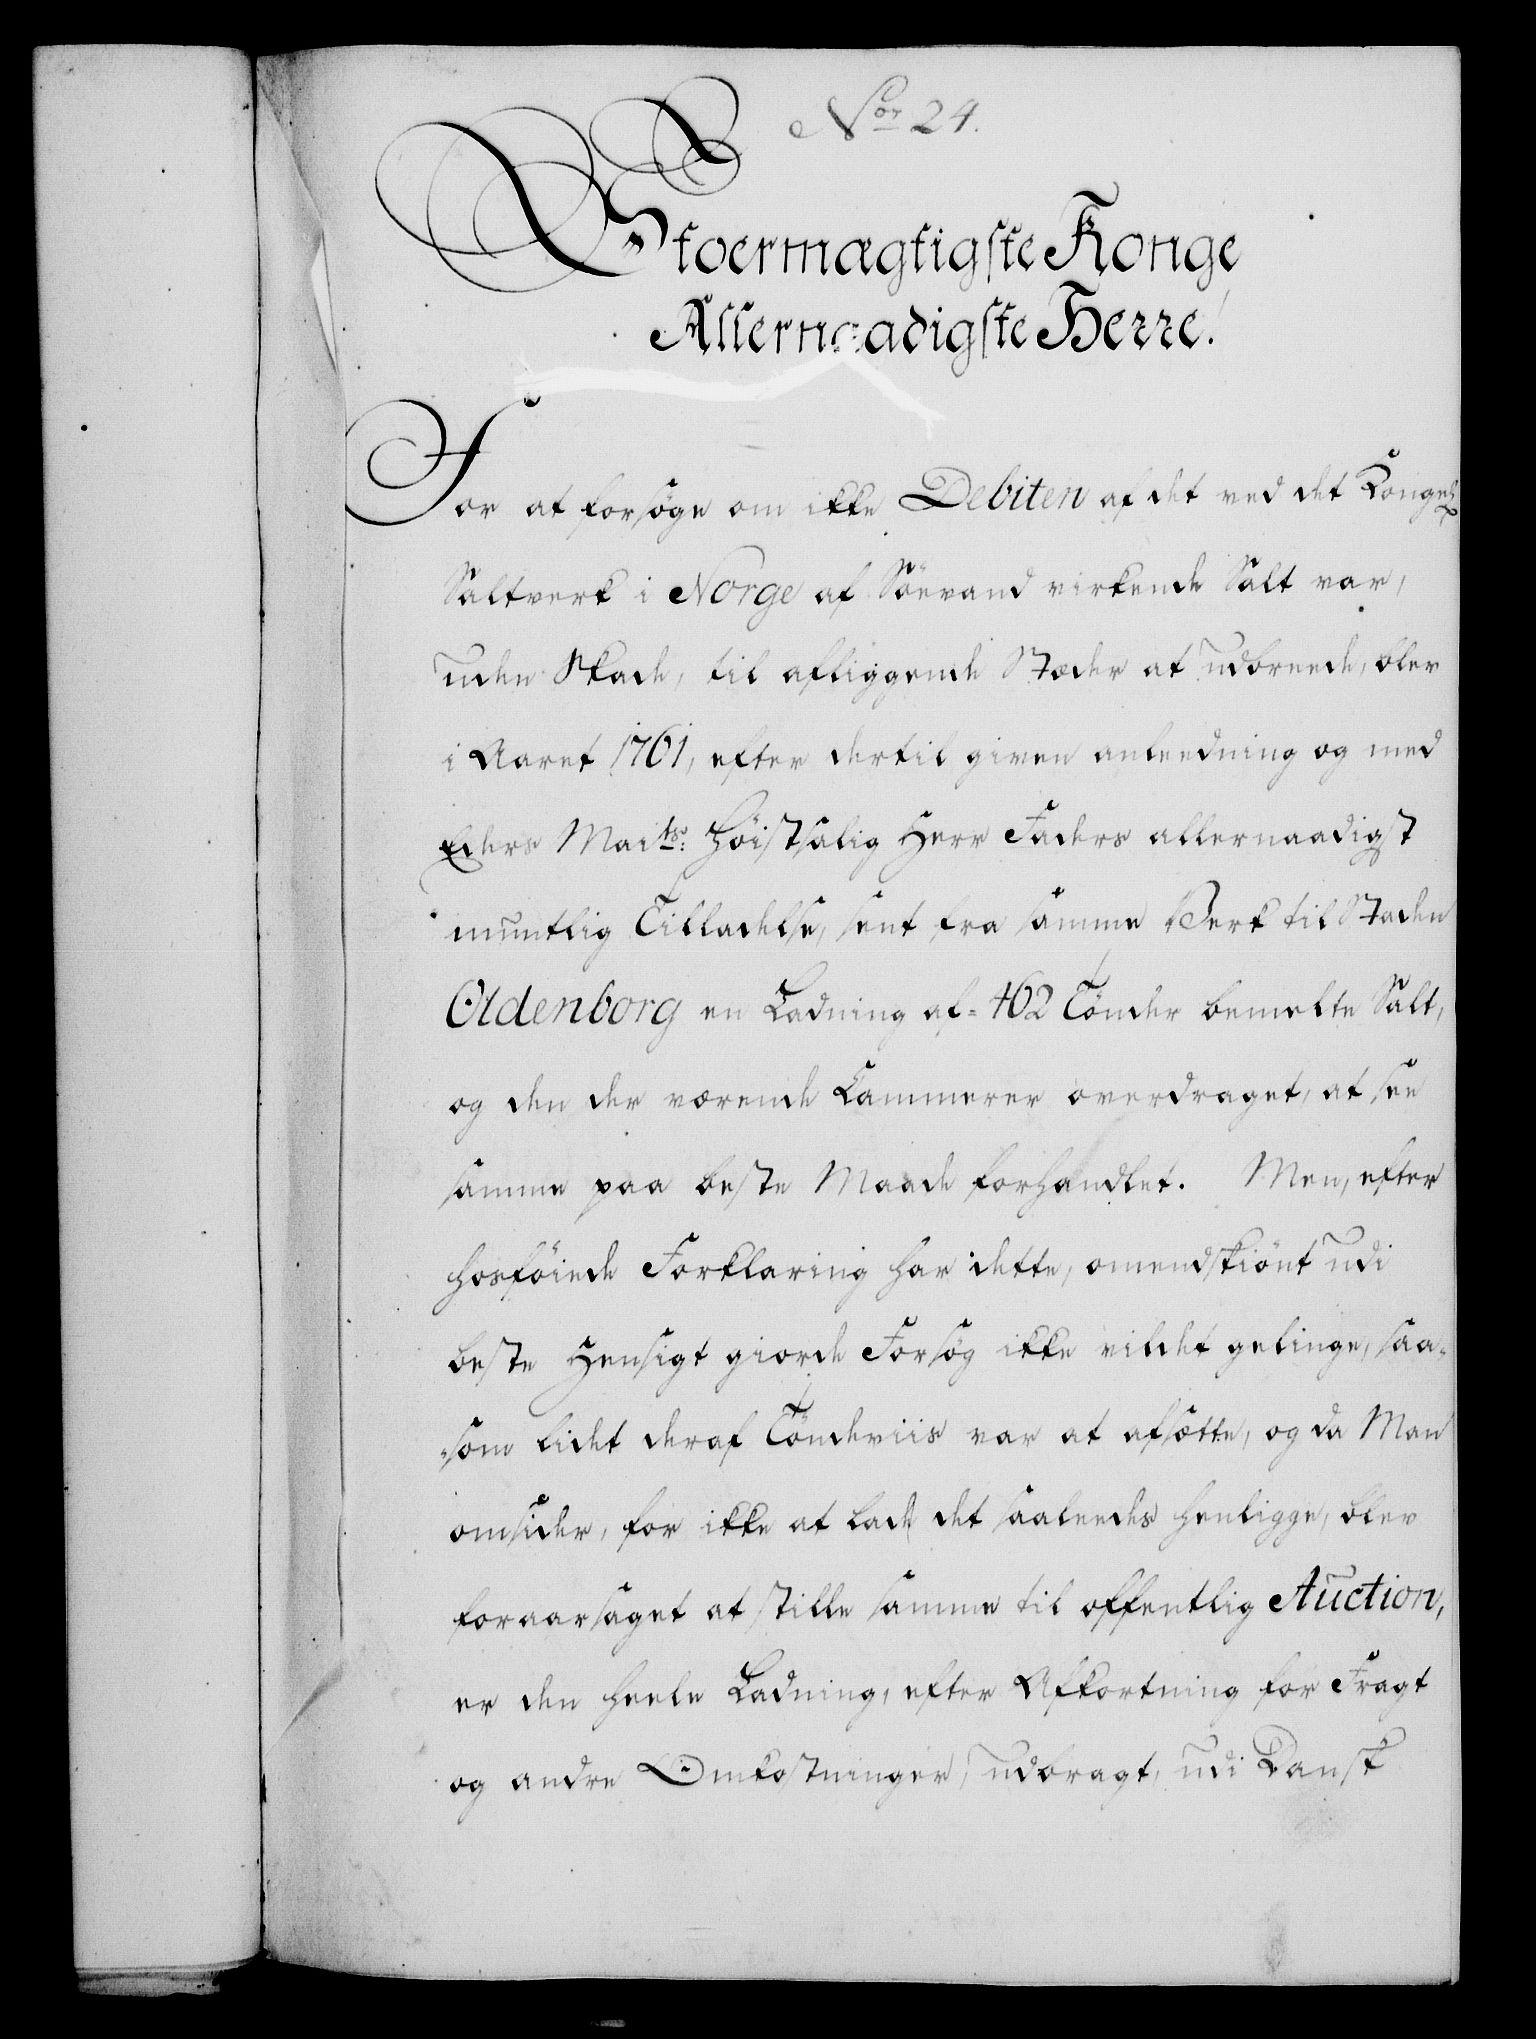 No<sup>or</sup> 24.
Stoermægtigste Konge
Allernaadigste Herre!
For at forsøge om ikke Debiten af det ved det Kongel.
Saltverk i Norge af Söevand virkende Salt var,
uden Skade, til afliggende Stæder at udbreede, blev
i Aaret 1761, efter dertil given anleedning og med
Eders Mai<sup>ts</sup>: Höistsalig Herr Faders allernaadigst
muntlig Tilladelse, sent fra samme Verk til Staden
Oldenborg en Ladning af = 462 Tönder bemelte Salt,
og den der værende Cammerer overdraget, at see
samme paa beste Maade forhandlet. Men, efter
hosföiede Forklaring har dette, omendskiönt udi
beste Hensigt giorde Forsøg ikke vildet gelinge, saa-
-som lidet deraf Töndeviis var at afsætte, og da Man
omsider, for ikke at lade det saaleedes henligge, blev
foraarsaget at stille samme til offentlig Auction,
er den heele Ladning, efter Afkortning for Fragt
og andre Omkostninger, udbragt, udi Dansk